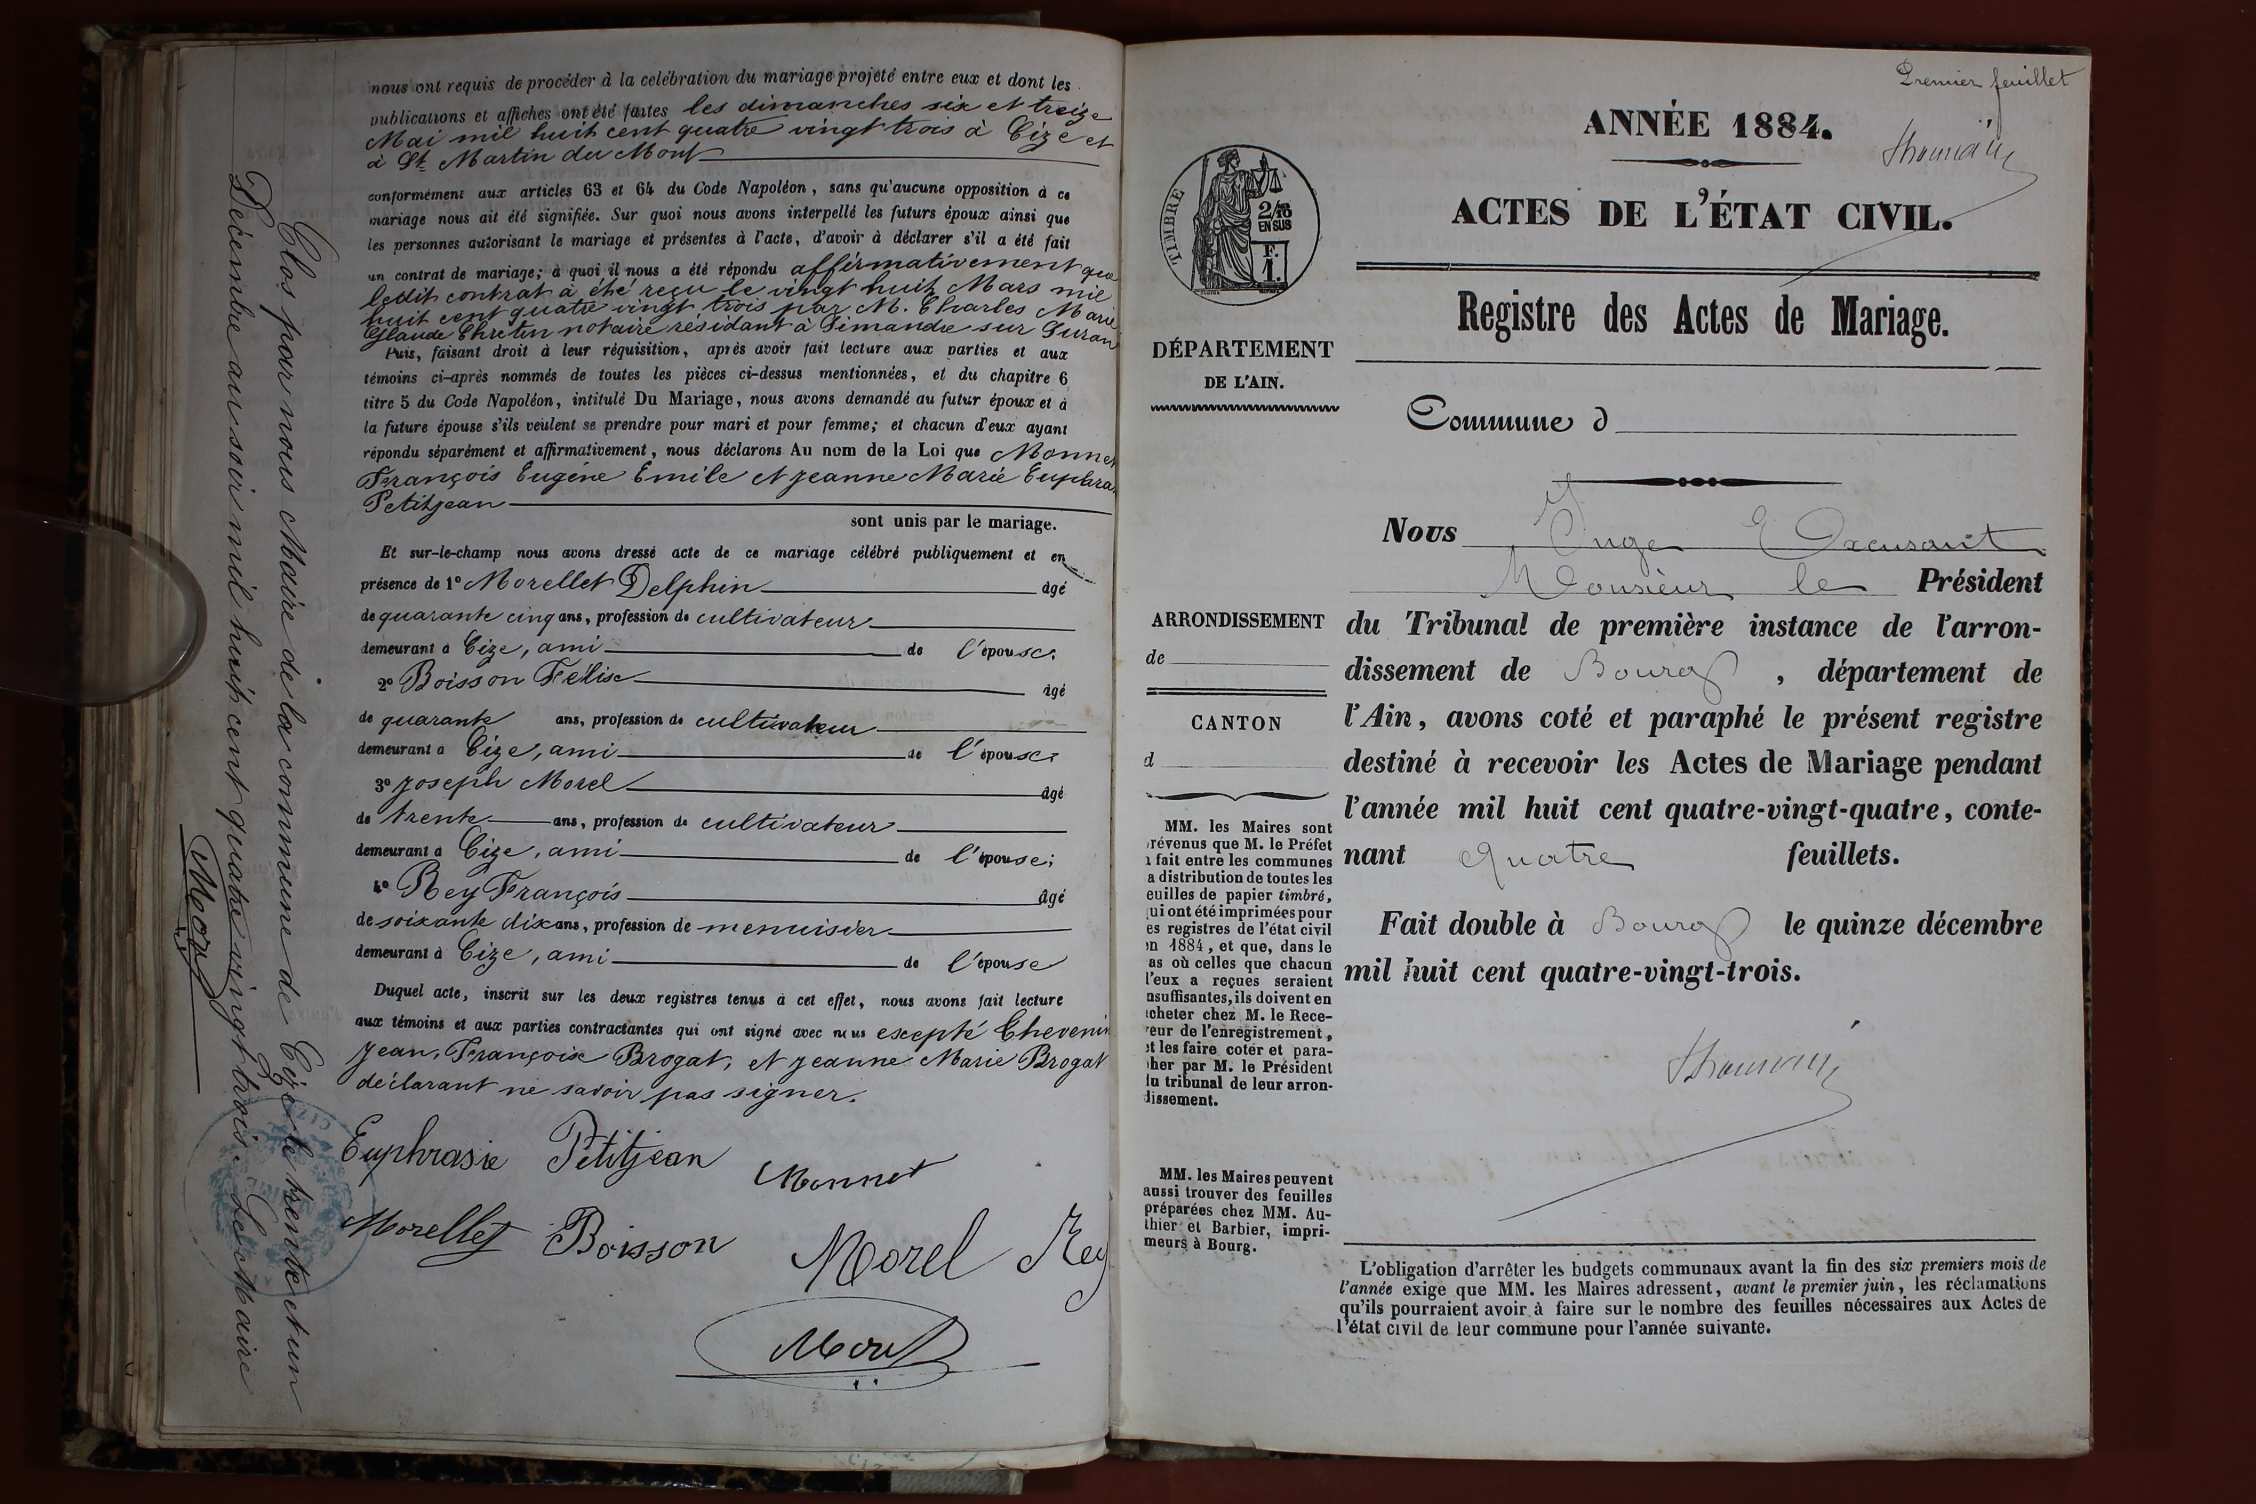 nous ont requis de procéder à la celébration du mariage projeté entre eux et dont les
publications et affiches ont été faites les dimanches six et treize
Mai mil huit cent quatre vingt trois à Cize et
à St Martin du Mont
conformément aux articles 63 et 64 du Code Napoléon, sans qu'aucune opposition à ce
mariage nous ait été signifiée. Sur quoi nous avons interpellé les futurs époux ainsi que
les personnes autorisant le mariage et présentes à l'acte, d'avoir à déclarer s'il a été fait
un contrat de mariage; à quoi il nous a été répondu affirmativement que
ledit contrat à été reçu le vingt huit Mars mil
huit cent quatre vingt trois par M. Charles Marie
Glaude Chretin notaire résidant à Simandre sur Suran
Puis, faisant droit à leur réquisition, après avoir fait lecture aux parties et aux
témoins ci-après nommés de toutes les pièces ci-dessus mentionnées, et du chapitre 6
titre 5 du Code Napoléon, intitulé Du Mariage, nous avons demandé au futur époux et à
la future épouse s'ils veulent se prendre pour mari et pour femme; et chacun d'eux ayant
répondu séparément et affirmativement, nous déclarons Au nom de la Loi que Monnet
François Eugène Emile et Jeanne Marie Euphra
Petitjean
sont unis par le mariage.
Et sur-le-champ nous avons dressé acte de ce mariage célébré publiquement et en
présence de 1º Morellet Delphin âgé
de quarante cinq ans, profession de cultivateur
demeurant à Cize, ami de l'épouse;
2º Boisson Félix âgé
de quarante ans, profession de cultivateur
demeurant à Cize, ami de l'épouse;
3º Joseph Morel âgé
de trente ans, profession de cultivateur
demeurant à Cize, ami de l'épouse;
4º Rey François âgé
de soixante dix ans, profession de menuisier
demeurant à Cize, ami de l'épouse
Duquel acte, inscrit sur les deux registres tenus à cet effet, nous avons fait lecture
aux témoins et aux parties contractantes qui ont signé avec nous excepté Chevenin
Jean, Françoise Brogat, et Jeanne Marie Brogat
déclarant ne savoir pas signer.
Euphrasie Petitjean
Monnet
Morellet Boisson Morel Rey
Clos pour nous Maire de la commune de Cize le trente et un
Décembre au soir mil huit cent quatre vingt trois. Le Maire
Premier feuillet
ANNÉE 1884.
ACTES DE L'ÉTAT CIVIL.
TIMBRE
2/10
EN SUS
F.
1.
Registre des Actes de Mariage.
DÉPARTEMENT
DE L'AIN.
Commune d
Nous Juge Excusant
Monsieur le Président
du Tribunal de première instance de l'arron-
dissement de Bourg, département de
l'Ain, avons coté et paraphé le présent registre
destiné à recevoir les Actes de Mariage pendant
l'année mil huit cent quatre-vingt-quatre, conte-
nant quatre feuillets.
Fait double à Bourg le quinze décembre
mil huit cent quatre-vingt-trois.
ARRONDISSEMENT
de
CANTON
d
MM. les Maires sont
révenus que M. le Préfet
a fait entre les communes
a distribution de toutes les
euilles de papier timbré,
ui ont été imprimées pour
es registres de l'état civil
en 1884, et que, dans le
as où celles que chacun
d'eux a reçues seraient
nsuffisantes, ils doivent en
cheter chez M. le Rece-
veur de l'enregistrement,
et les faire coter et para-
pher par M. le Président
du tribunal de leur arron-
dissement.
MM. les Maires peuvent
aussi trouver des feuilles
préparées chez MM. Au-
thier et Barbier, impri-
meurs à Bourg.
L'obligation d'arrêter les budgets communaux avant la fin des six premiers mois de
l'année exige que MM. les Maires adressent, avant le premier juin, les réclamations
qu'ils pourraient avoir à faire sur le nombre des feuilles nécessaires aux Actes de
l'état civil de leur commune pour l'année suivante.